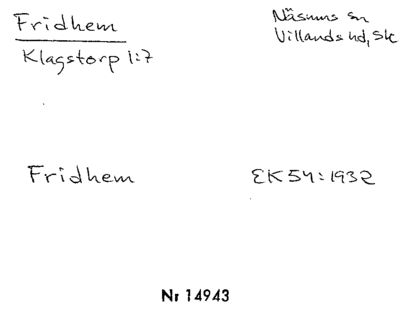 Fridhem
Näsums sn
Klagstorp 1:7
Villands hd, Sk
Fridhem
EK54:1932
Nr 14943